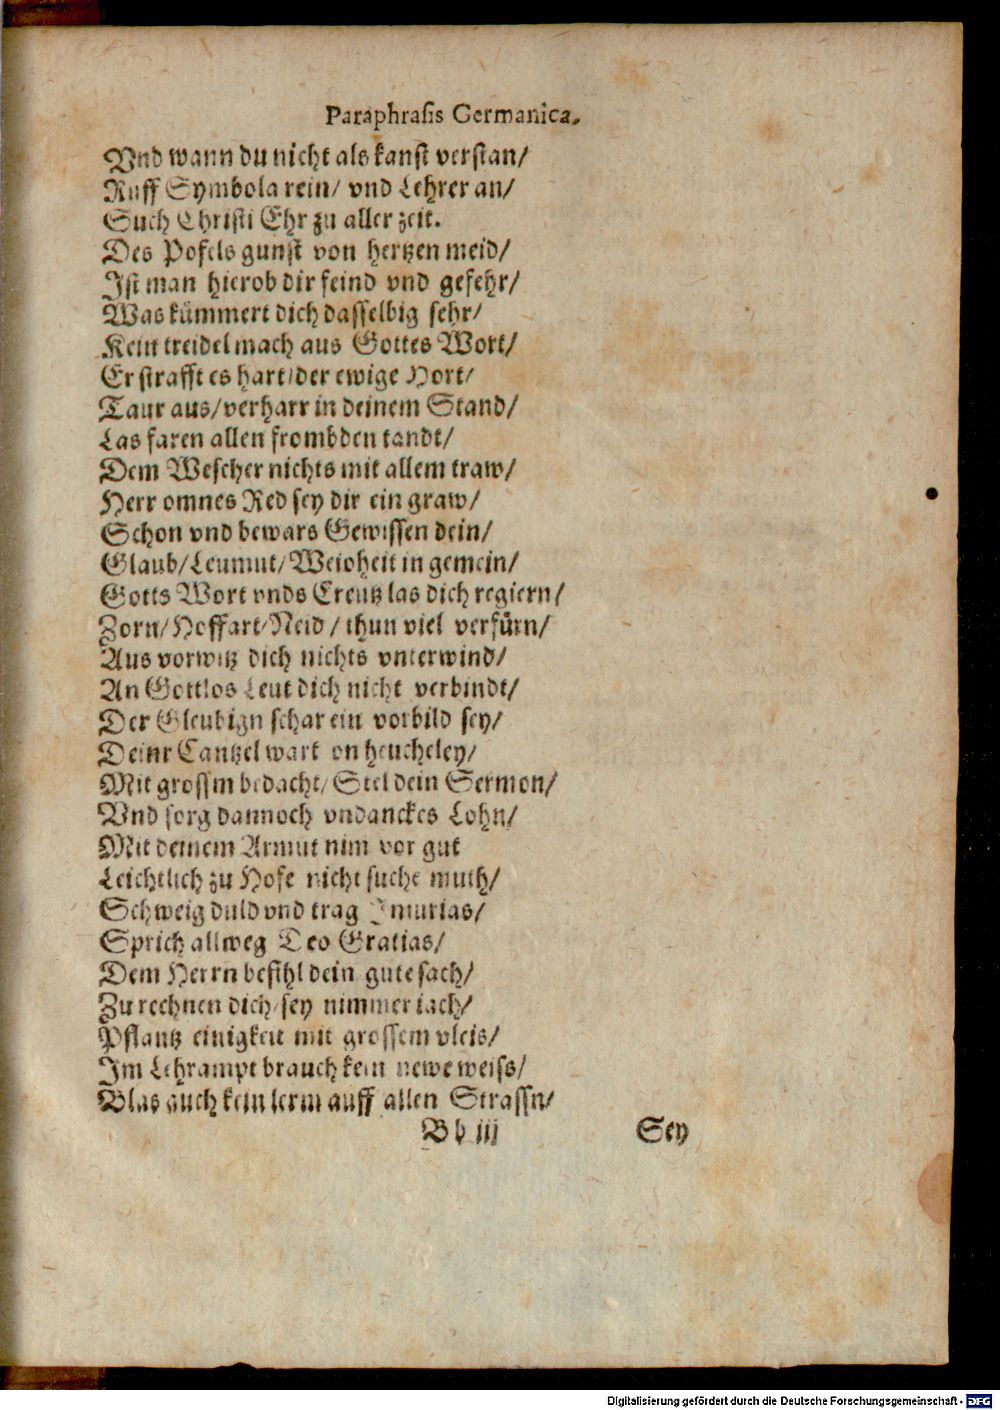 Paraphrasis Germanica.
Vnd wann du nicht als kanst verstan/
Ruff Symbola rein/ vnd Lehrer an/
Such Christi Ehr zu aller zeit.
Des Pofels gunst von hertzen meid/
Ist man hierob dir feind vnd gefehr/
Was kümmert dich dasselbig sehr/
Kein treidel mach aus Gottes Wort/
Er strafft es hart/ der ewige Hort/
Taur aus/ verharr in deinem Stand/
Las faren allen frombden tandt/
Dem Wescher nichts mit allem traw/
Herr omnes Red sey dir ein graw/
Schon vnd bewars Gewissen dein/
Glaub/ Leumut/ Weisheit in gemein/
Gotts Wort vnds Creutz las dich regiern/
Zorn/ Hoffart/ Neid / thun viel verfürn/
Aus vorwitz dich nichts vnterwind/
An Gottlos Leut dich nicht verbindt/
Der Gleubign schar ein vorbild sey/
Deinr Cantzel wart on heucheley/
Mit grossm bedacht/ Stel dein Sermon/
Vnd sorg dannoch vndanckes Lohn/
Mit deinem Armut nim vor gut
Leichtlich zu Hofe nicht suche muth/
Schweig duld vnd trag Iniurias/
Sprich allweg Deo Gratias/
Dem Herrn befihl dein gute sach/
Zu rechnen dich/ sey nimmer iach/
Pflantz einigkeit mit grossem vleis/
Im Lehrampt brauch kein newe weiss/
Blas auch kein lerm auff allen Strassn/
Bb iij Sey
Digitalisierung gefördert durch die Deutsche Forschungsgemeinschaft - DFG